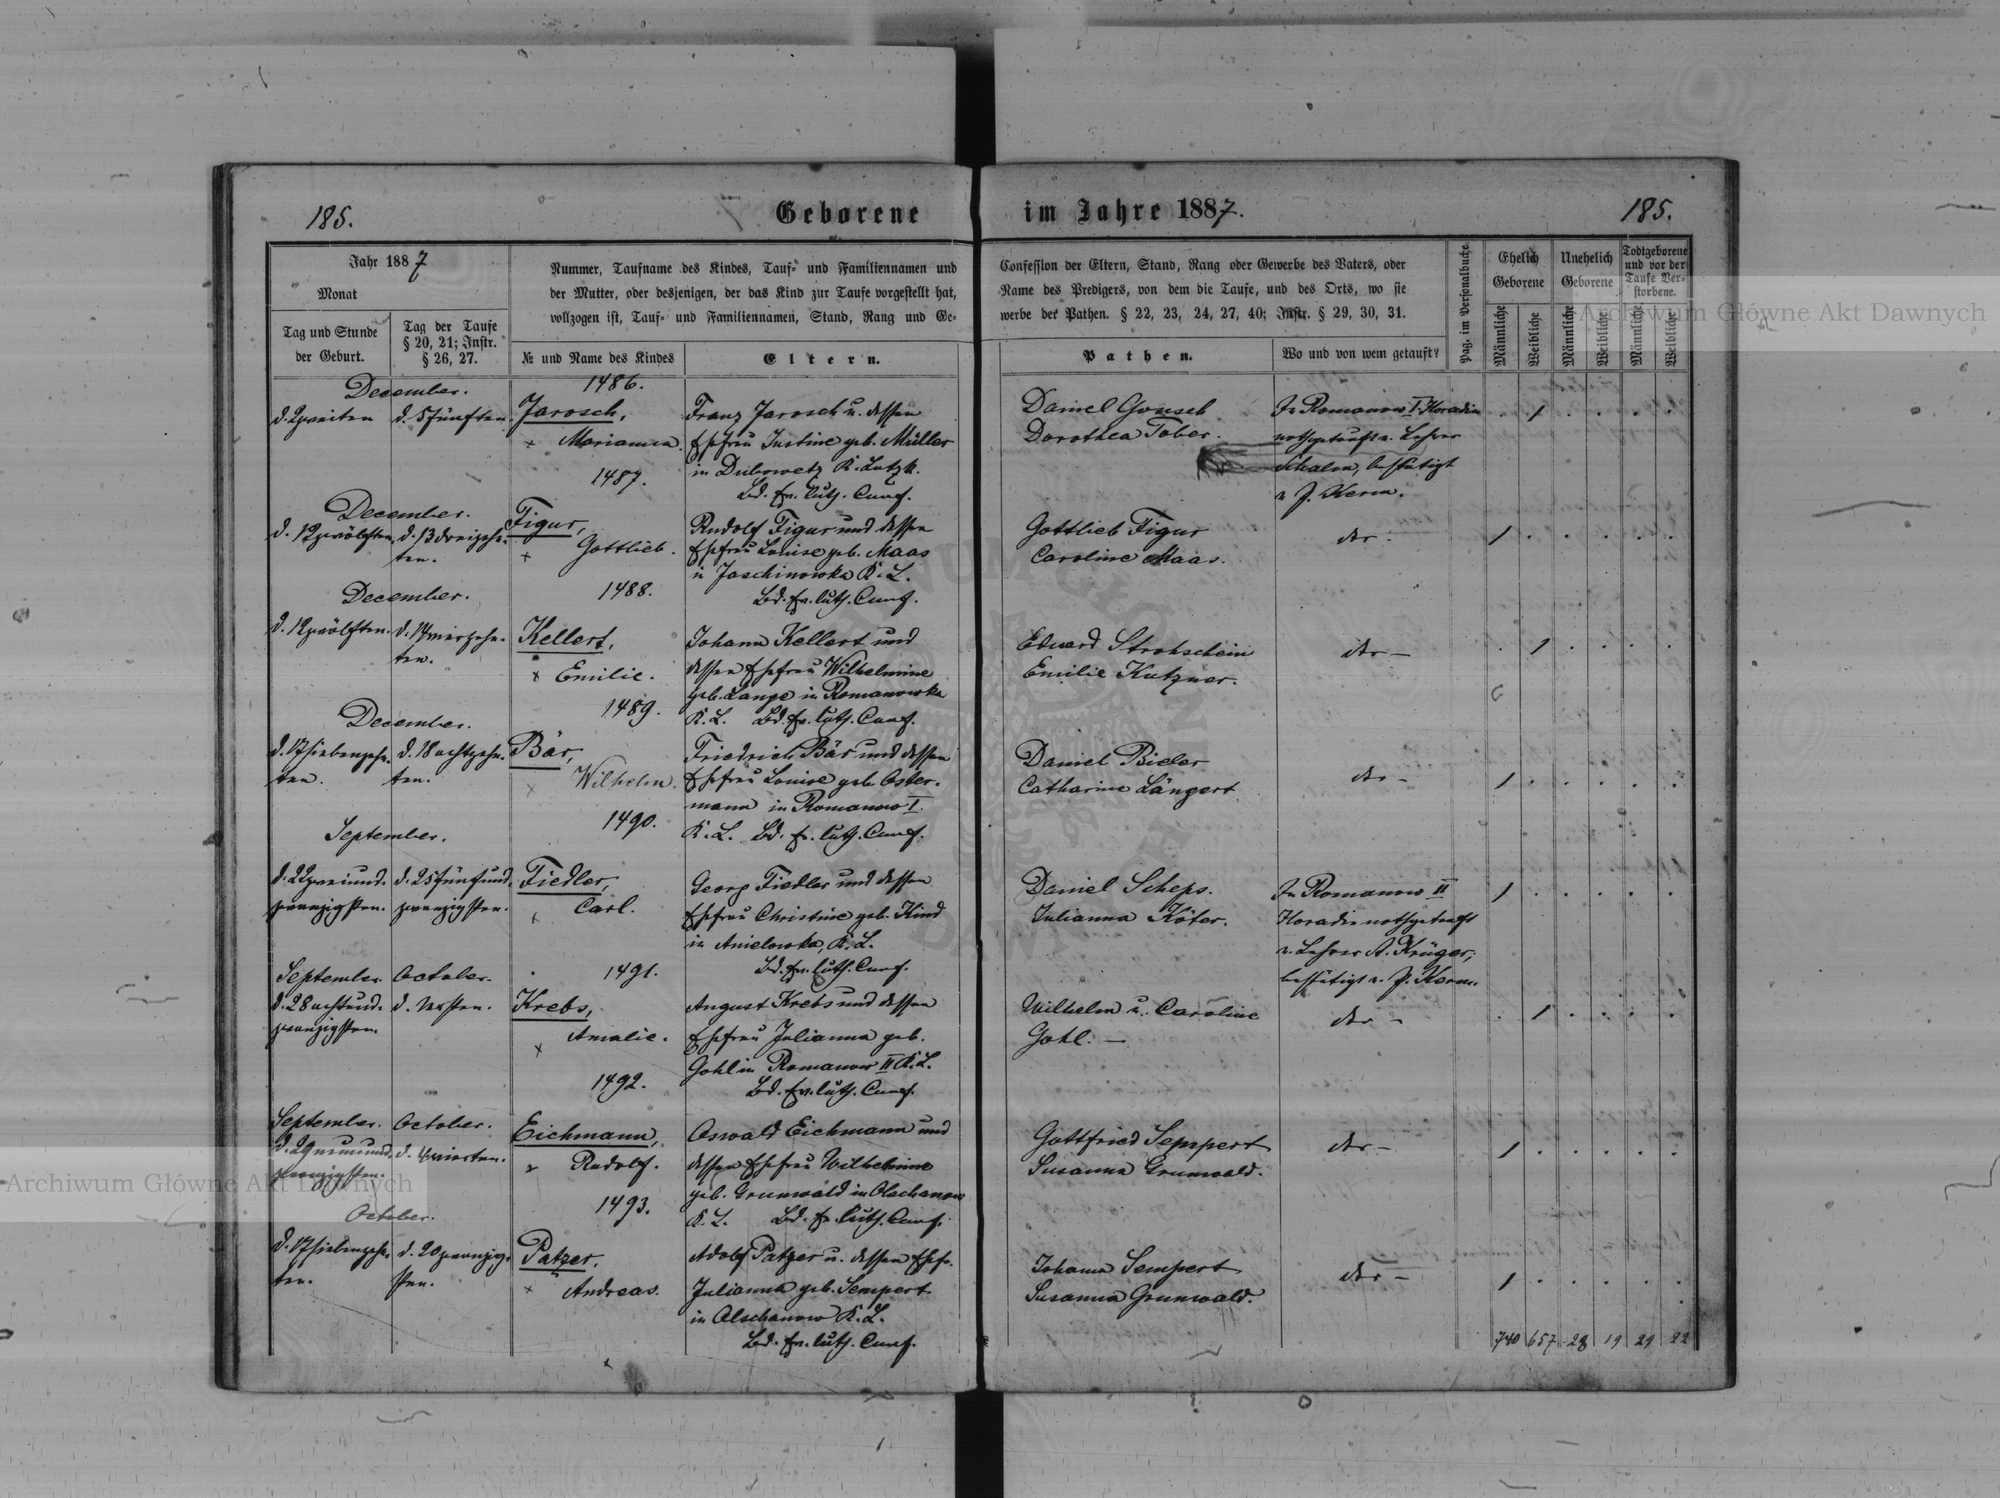 185.
Geborene
im Jahre 1887.
185.
Jahr 1887
Monat
Tag und Stunde
der Geburt.
Tag der Taufe
§ 20, 21; Instr.
§ 26, 27.
Nummer, Taufname des Kindes, Tauf- und Familiennamen und
der Mutter, oder desjenigen, der das Kind zur Taufe vorgestellt hat,
vollzogen ist, Tauf- und Familiennamen, Stand, Rang und Ge-
№ und Name des Kindes
Eltern.
Confession der Eltern, Stand, Rang oder Gewerbe des Vaters, oder
Name des Predigers, von dem die Taufe, und des Orts, wo sie
werbe der Pathen. § 22, 23, 24, 27, 40; Instr. § 29, 30, 31.
Pathen.
Wo und von wem getauft?
Pag. im Personalbuche
Ehelich
Geborene
Unehelich
Geborene
Todtgeborene
und vor der
Taufe Ver-
storbene.
Männliche
Weibliche
Männliche
Weibliche
Männliche
Weibliche
December.
d. 2 zweiten
d. 5 fünften.
1486.
Jarosch,
Marianna.
Franz Jarosch u. dessen
Ehefrau Justine geb. Müller
in Dubowetz K. Lutzk.
Bd. Ev. luth. Conf.
Daniel
Dorothea Tober.
In Romanow I Horadin
nothgetauft v. Lehrer
bestätigt
v. P. Kern.
December.
d. 12 zwölften.
d. 13 dreizehn-
ten.
1487.
Figur,
Gottlieb.
Rudolf Figur und dessen
Ehefrau Louise geb. Maas
in Jaschinowka K. L.
Bd. Ev. luth. Conf.
Gottlieb Figur
Caroline Maas.
dto -
December.
d. 12 zwölften.
d. 14 vierzehn-
ten.
1488.
Kellert,
Emilie.
Johann Kellert und
dessen Ehefrau Wilhelmine
geb. Lange in Romanowka
K. L. Bd. Ev. luth. Conf.
Eduard Strohschein
Emilie Kutzner.
dto -
December.
d. 17 siebenzehn-
ten.
d. 18 achtzehn-
ten.
1489.
Bär,
Wilhelm.
Friedrich Bär und dessen
Ehefrau Louise geb. Oster-
mann in Romanow I.
K. L. Bd. Ev. luth. Conf.
Daniel Bieler
Catharine Längert.
dto -
September.
d. 22 zweiund-
zwanzigsten.
d. 25 fünfund-
zwanzigsten.
1490.
Fiedler,
Carl.
Georg Fiedler und dessen
Ehefrau Christine geb. Kind
in Anielowka, K. L.
Bd. Ev. luth. Conf.
Daniel Scheps.
Julianna Köter.
In Romanow II
Horadin nothgetauft
v. Lehrer A. Krüger,
bestätigt v. P. Kern.
September.
October.
d. 28 achtund-
zwanzigsten.
d. ersten.
1491.
Krebs,
Amalie.
August Krebs und dessen
Ehefrau Julianna geb.
Gohl in Romanow II K. L.
Bd. Ev. luth. Conf.
Wilhelm u. Caroline
Gohl. -
dto -
September.
October.
d. 29 neunund-
zwanzigsten.
d. 4 vierten.
1492.
Eichmann,
Rudolf.
Oswald Eichmann und
dessen Ehefrau Wilhelmine
geb. Grunwald in Olschanow
K. L. Bd. Ev. luth. Conf.
Gottfried Sempert
Susanna Grunwald.
dto -
October.
d. 17 siebenzehn-
ten.
d. 20 zwanzig-
sten.
1493.
Patzer,
Andreas.
Adolf Patzer u. dessen Ehefr.
Julianna geb. Sempert
in Olschanow K. L.
Bd. Ev. luth. Conf.
Johann Sempert
Susanna Grunwald.
dto -
740 657 28 19 29 22
Archiwum Główne Akt Dawnych
Archiwum Główne Akt Dawnych